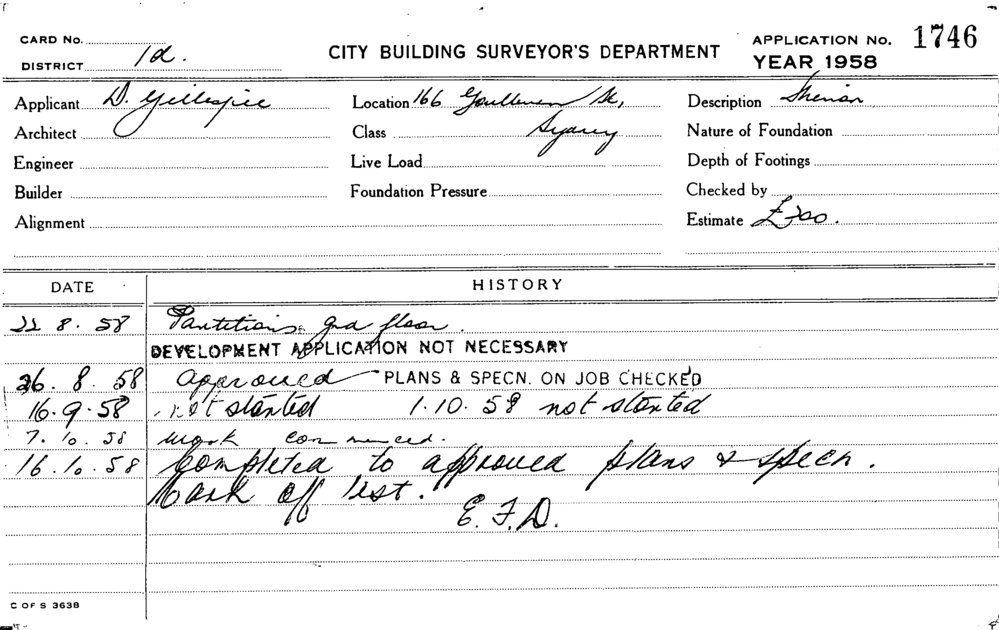 CARD No.
DISTRICT 1d.
CITY BUILDING SURVEYOR'S DEPARTMENT
APPLICATION No. 1746
YEAR 1958
Applicant D. Gillespie
Location 166 Goulburn St,
Description
Architect
Class Sydney
Nature of Foundation
Engineer
Live Load
Depth of Footings
Builder
Foundation Pressure
Checked by
Alignment
Estimate £700.
DATE HISTORY
22 8. 58 Partitions grd floor.
DEVELOPMENT APPLICATION NOT NECESSARY
26. 8. 58 approved PLANS & SPECN. ON JOB CHECKED
16.9.58 not started 1.10.58 not started
7.10.58 work commenced.
16.10.58 Completed to approved plans & specn.
mark off list.
E.F.D.
C OF S 3638